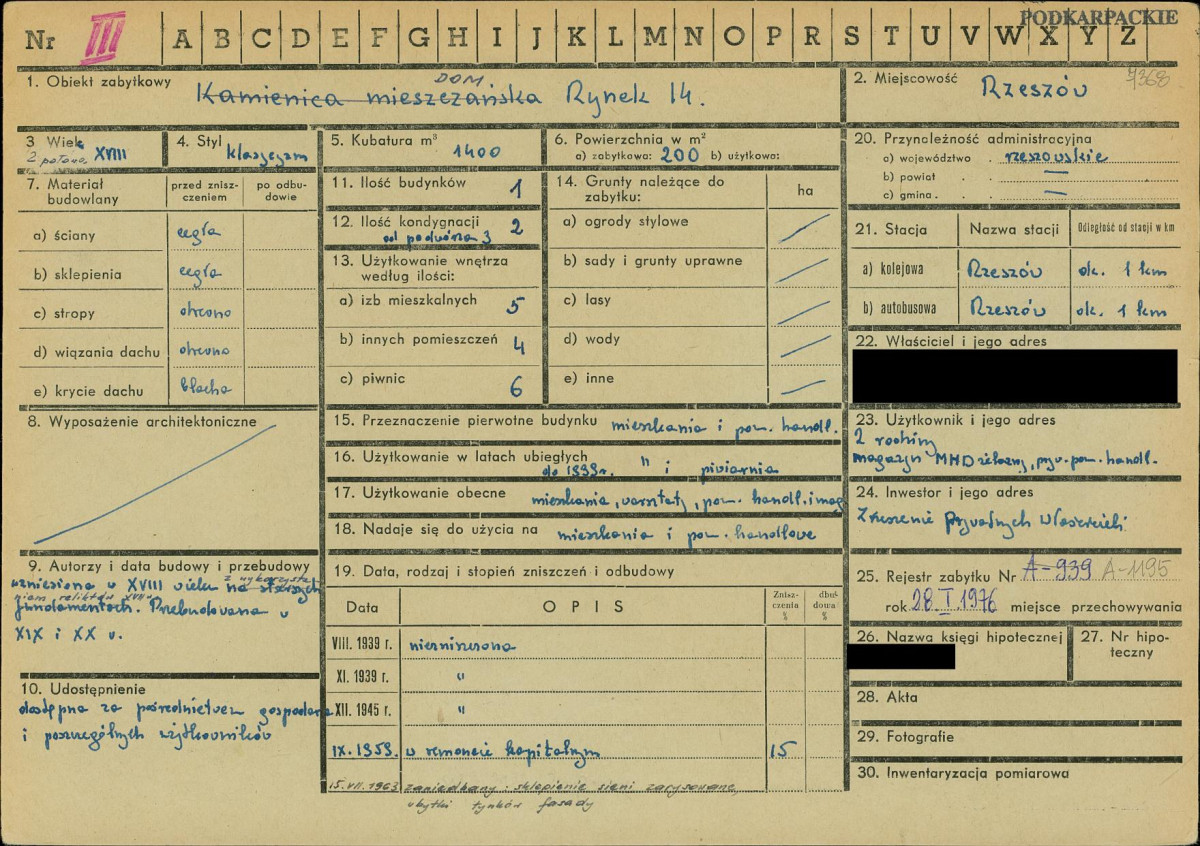 PODKARPACKIE
Nr III A B C D E F G H I J K L M N O P R S T U V W X Y Z
1. Obiekt zabytkowy
DOM
Kamienica mieszczańska Rynek 14.
2. Miejscowość
7368
Rzeszów
3 Wiek
2 połowa XVIII
4. Styl
klasycyzm
5. Kubatura m³
1400
6. Powierzchnia w m²
a) zabytkowa: 200 b) użytkowa:
20. Przynależność administracyjna
a) województwo . rzeszowskie
b) powiat . . —
c) gmina . . —
7. Materiał budowlany
przed znisz-
czeniem
po odbu-
dowie
a) ściany cegła
b) sklepienia cegła
c) stropy drewno
d) wiązania dachu drewno
e) krycie dachu blacha
8. Wyposażenie architektoniczne
9. Autorzy i data budowy i przebudowy
wzniesiona w XVIII wieku na starszych
z wykorzysta
niem reliktów XVII w.
fundamentach. Przebudowana w
XIX i XX w.
10. Udostępnienie
dostępna za pośrednictwem gospodarza
i poszczególnych użytkowników
11. Ilość budynków 1
12. Ilość kondygnacji 2
od podwórza 3
13. Użytkowanie wnętrza
według ilości:
a) izb mieszkalnych 5
b) innych pomieszczeń 4
c) piwnic 6
14. Grunty należące do
zabytku:
ha
a) ogrody stylowe
b) sady i grunty uprawne
c) lasy
d) wody
e) inne
15. Przeznaczenie pierwotne budynku mieszkania i pom. handl.
16. Użytkowanie w latach ubiegłych
do 1939r. " i piwiarnia
17. Użytkowanie obecne mieszkania, warsztaty, pom. handl. i mag
18. Nadaje się do użycia na mieszkania i pom. handlowe
19. Data, rodzaj i stopień zniszczeń i odbudowy
Data
OPIS
Znisz-
czenia
%
dbu-
dowa
%
VIII. 1939 r. niezniszczona
XI. 1939 r. "
XII. 1945 r. "
IX. 1959. w remoncie kapitalnym 15
15.VII.1963 zaniedbany: sklepienie sieni zarysowane,
ubytki tynków fasady
21. Stacja
Nazwa stacji
Odległość od stacji w km
a) kolejowa Rzeszów ok. 1 km
b) autobusowa Rzeszów ok. 1 km
22. Właściciel i jego adres
23. Użytkownik i jego adres
2 rodziny
magazyn MHD żelazny, pryw. pom. handl.
24. Inwestor i jego adres
Zrzeszenie Prywatnych Właścicieli
25. Rejestr zabytku Nr A-939 A-1195
rok 28.I.1976 miejsce przechowywania
26. Nazwa księgi hipotecznej
27. Nr hipo-
teczny
28. Akta
29. Fotografie
30. Inwentaryzacja pomiarowa